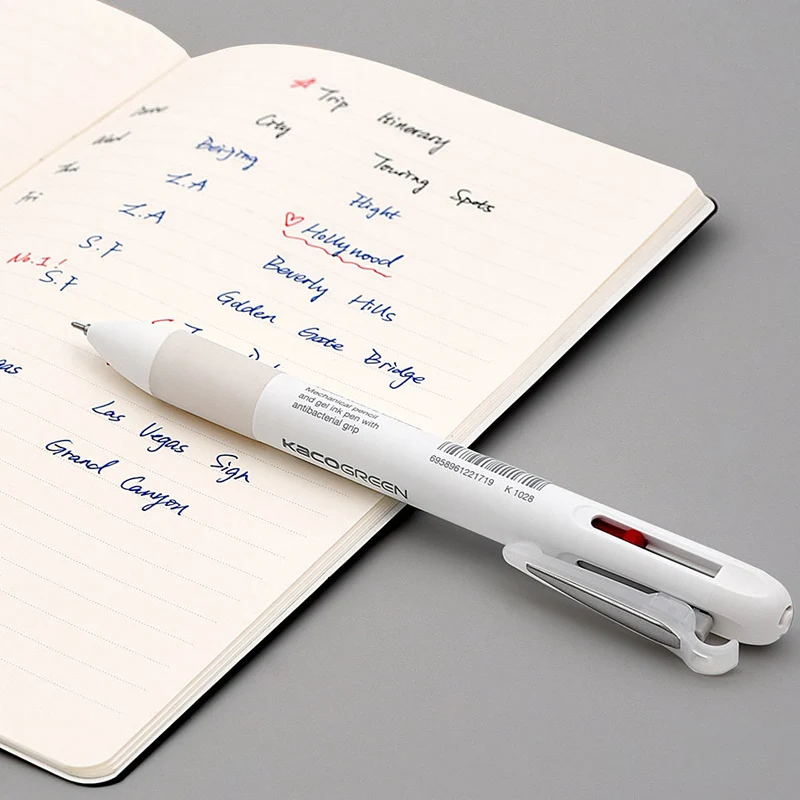 Trip Itinerary
City Touring Spots
Beijing Flight
Wed L.A Hollywood
Thu L.A Beverly Hills
Fri S.F Golden Gate Bridge
No.1!
S.F
Las Vegas Sign
Grand Canyon
Mechanical pencil
and gel ink pen with
antibacterial grip
KACOGREEN
6958961221719 K1028